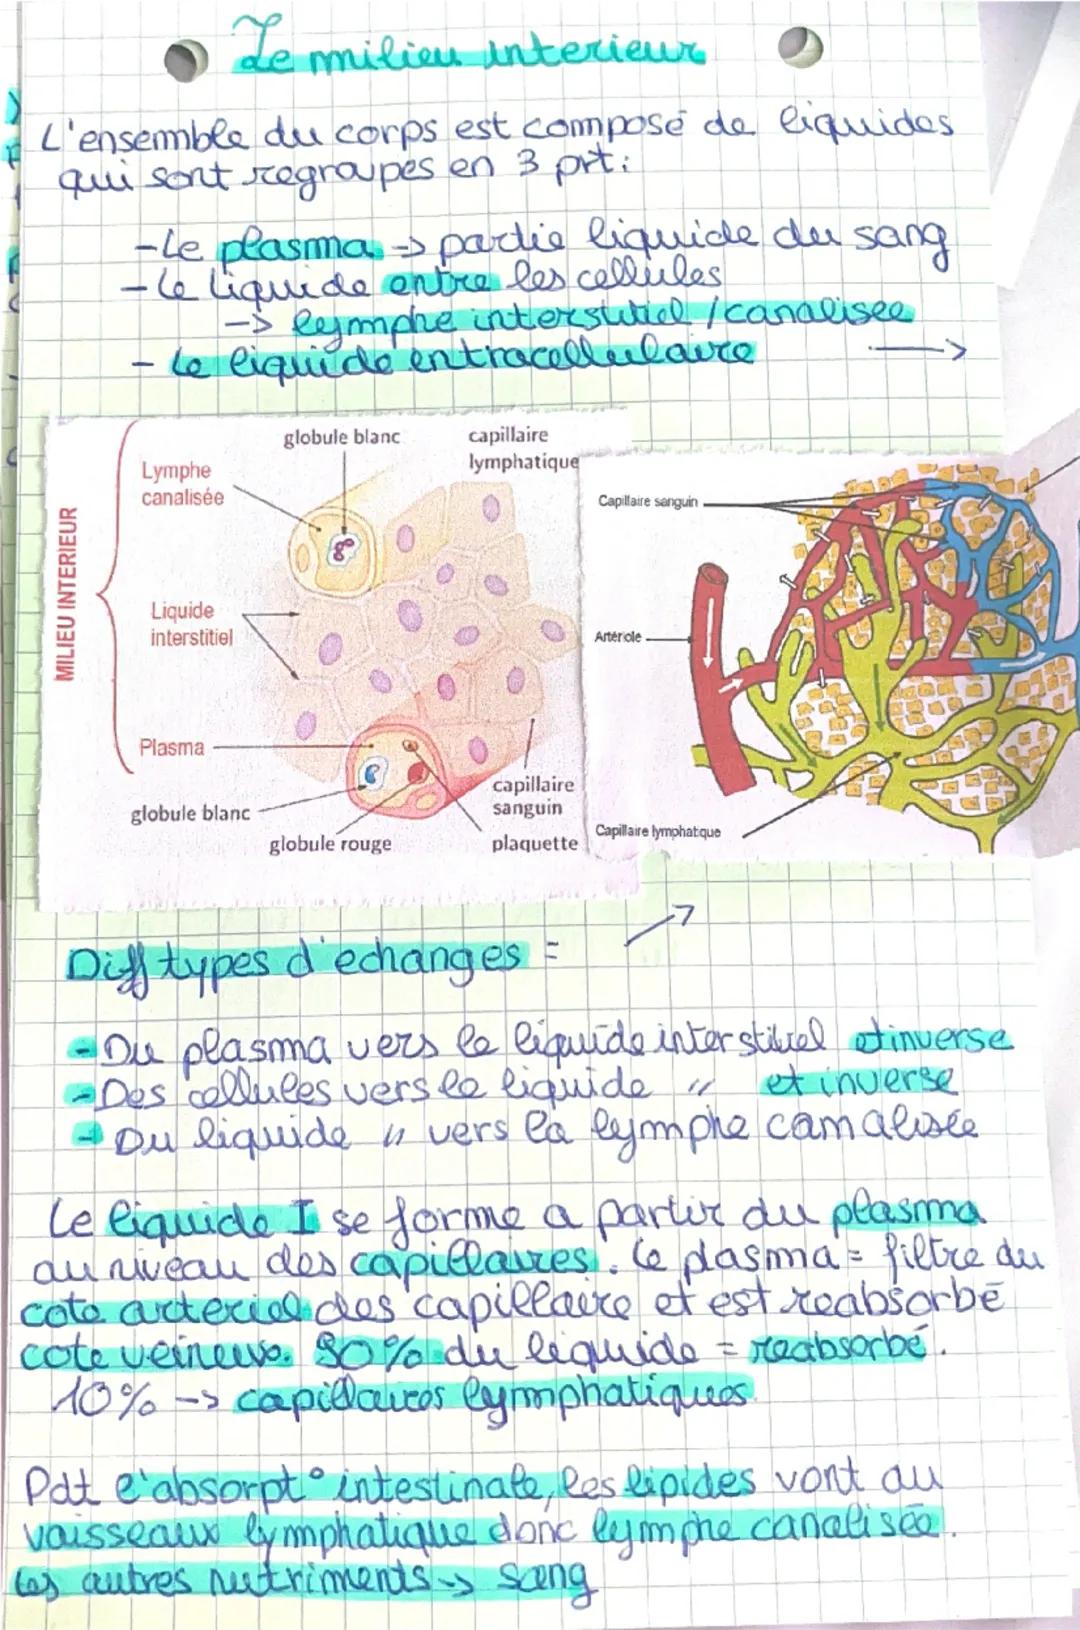 Le milieu interieur
L'ensemble du corps est composé de liquides
qui sont regroupes en 3 prt:
-Le plasma -> partie liquide du sang
-Le liquide entre les cellules
-> lymphe interstitiel / canalisee
- Le liquide entracellulaire ->
globule blanc
capillaire
lymphatique
Lymphe
canalisée
MILIEU INTERIEUR
Liquide
interstitiel
Plasma
globule blanc
globule rouge
capillaire
sanguin
plaquette
Capillaire sanguin
Artériole
Capillaire lymphatque
Diff types d'echanges =
-Du plasma vers le liquide interstitiel et inverse
-Des cellules vers le liquide " et inverse
- Du liquide " vers la lymphe canalisée
Le liquide I se forme a partir du plasma
au niveau des capillaires. Le plasma = filtre du
cote arteriel des capillaire et est reabsorbé
cote veineux. 90% du liquide = reabsorbé.
10% -> capillaires lymphatiques
Pdt l'absorpt° intestinale, les lipides vont au
vaisseaux lymphatique donc lymphe canalisée.
Les autres nutriments -> sang